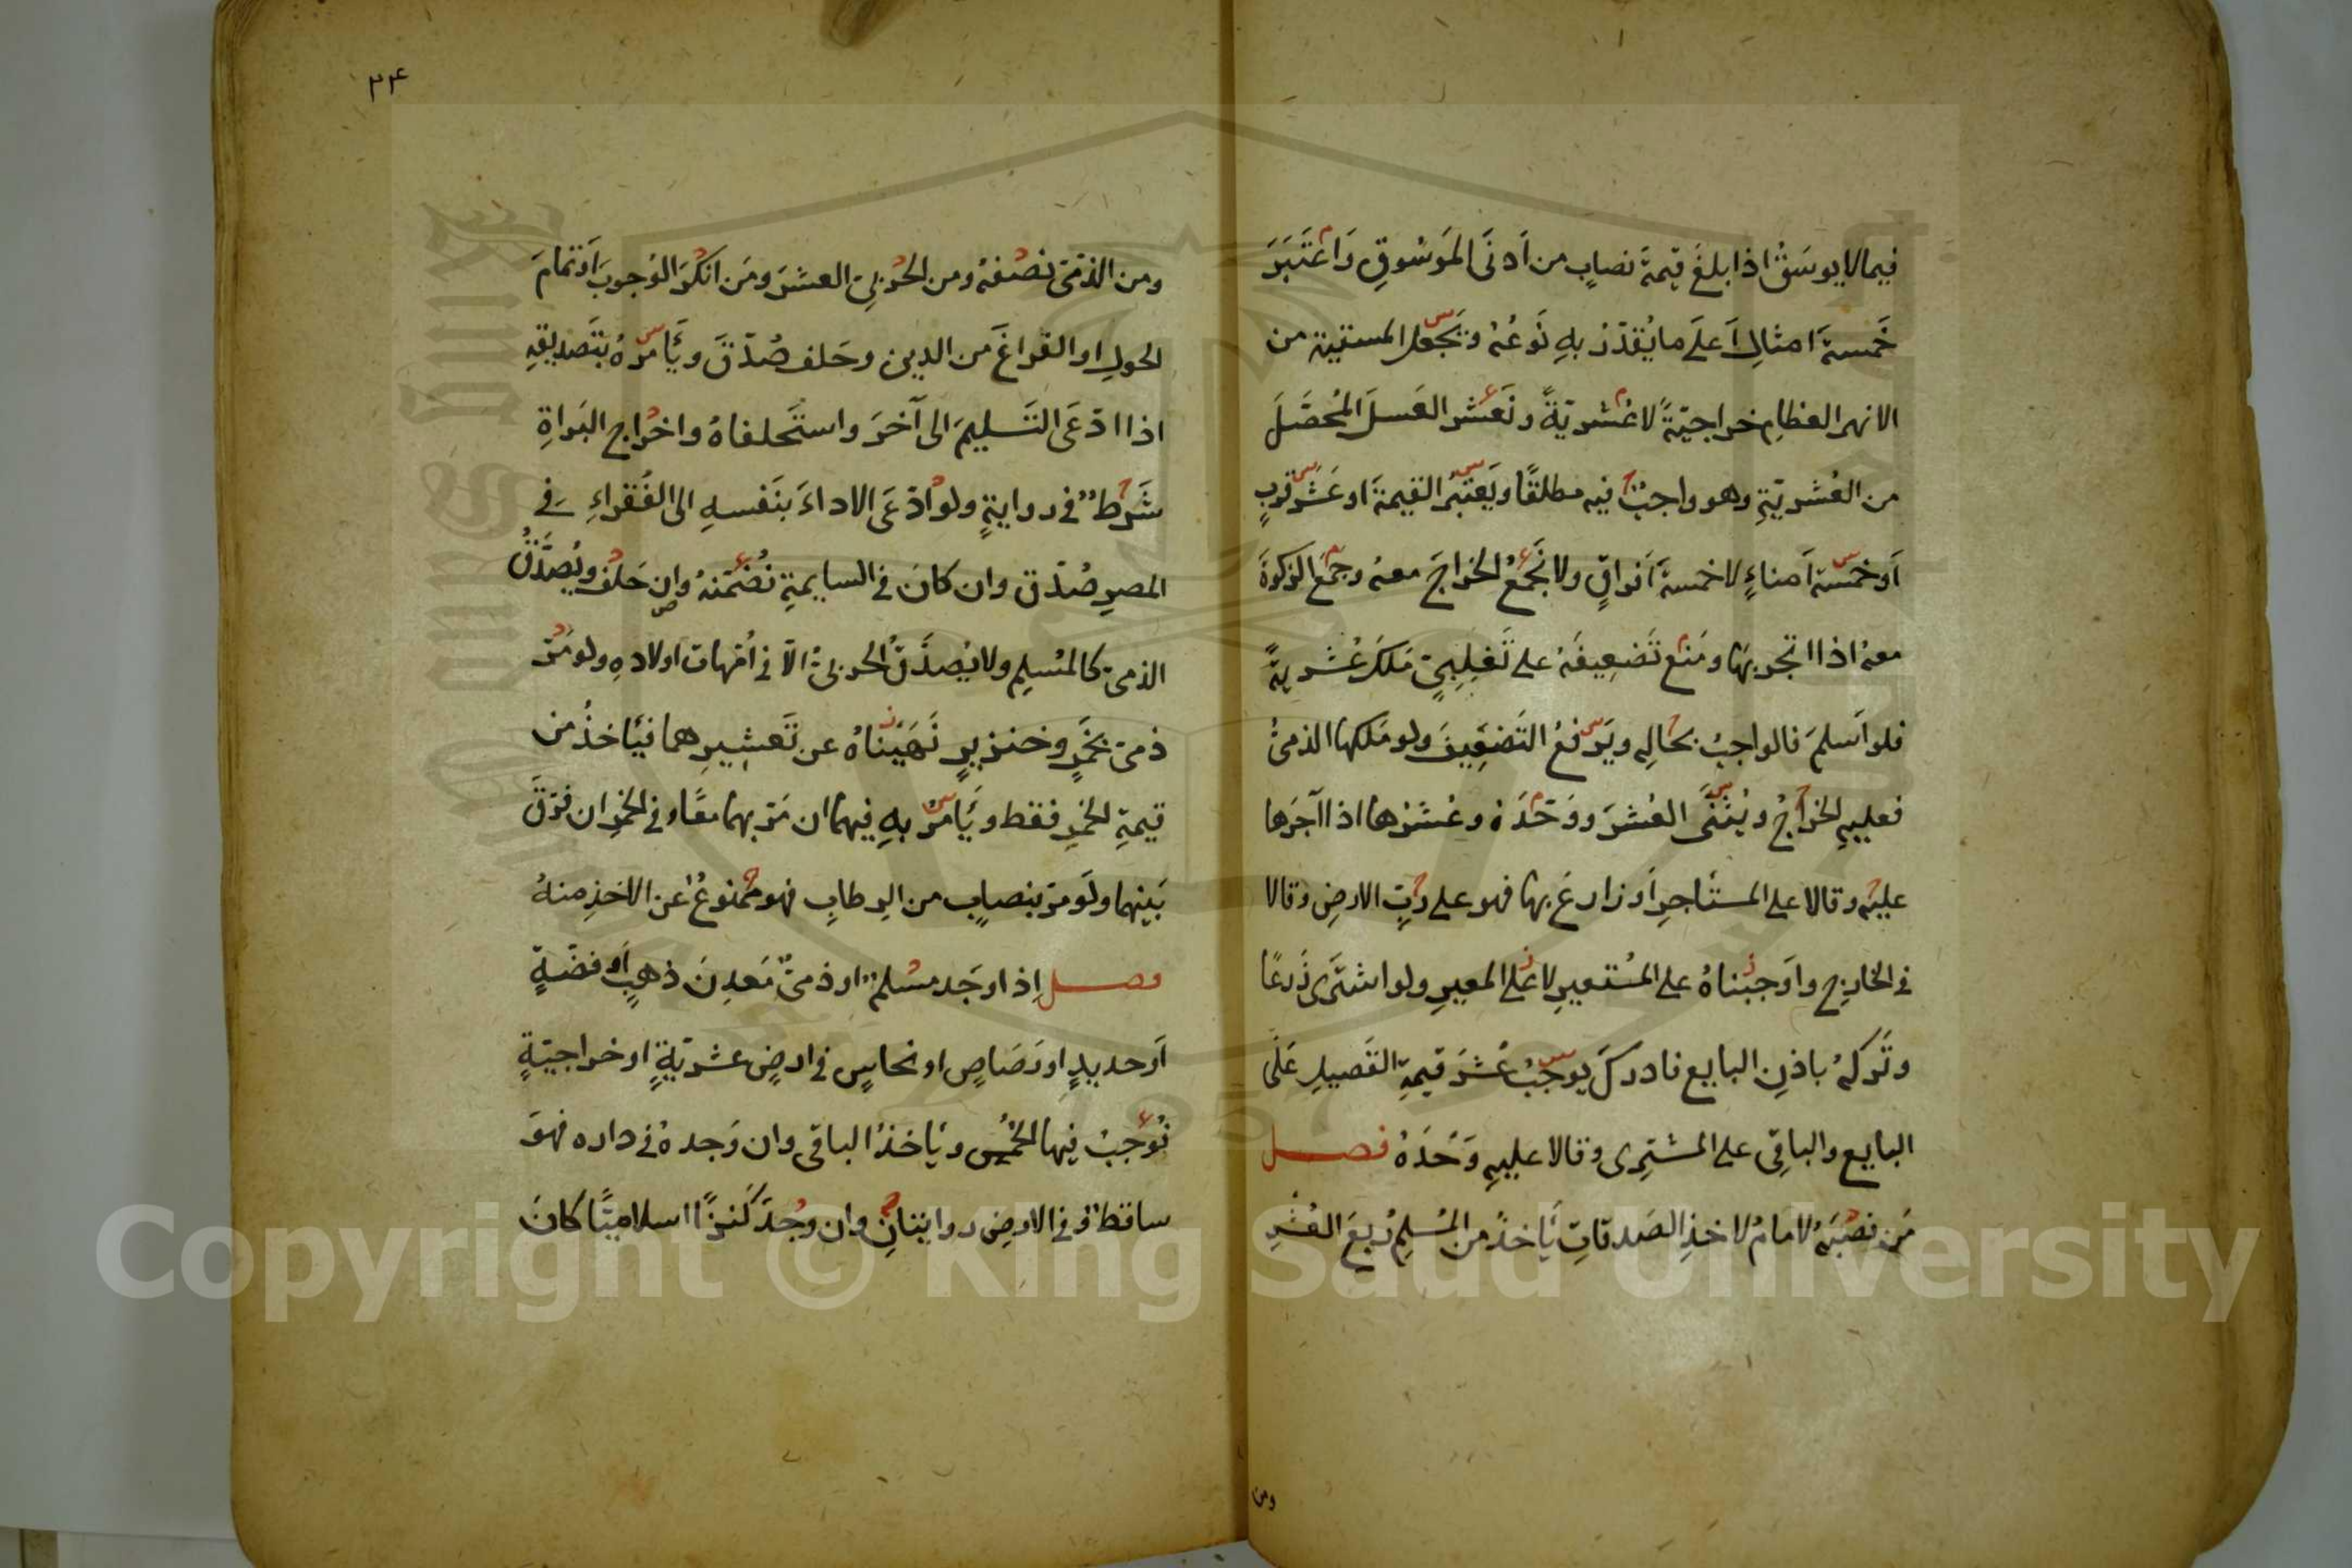 فيما لا يوسَقُ اذا بلغَ قيمةَ نصابٍ من اَدنَى المَوسُوقِ وَاعتَبَرَ
خَمسةَ امثالِ اَعلَى ما يُقدّرُ بهِ نَوعُهُ ونَجعل المستقيةَ من
الانهر العظامِ خراجيّةً لا عُشريّةً ونَعشر العَسلَ المُحصَّلَ
من العُشريّةِ وهو واجبٌ فيه مطلقًا ويَعتبرُ القيمةَ او عَشرَ قربٍ
اَو خمسةَ اَمناءٍ لا خمسةَ اَفراقٍ ولا نَجمعُ الخراجَ معهُ وجمعَ الزكوةَ
معهُ اذا اتجر بهَا ومَنع تَضعِيفَهُ على تَغلِبِىّ مَلكَ عُشريّةً
فلو اَسلمَ فالواجبُ بحالِهِ ويَرفعُ التَضعِيفَ ولو مَلكها الذمىُّ
فعليهِ الخراجُ ويُثَنَّى العُشرَ ووَحَّدَهُ وعُشرُها اذا آجَرَها
عليهِ وقالا على المستَاجرِ اَو زارعَ بها فهو على رَبِّ الارضِ وقالا
فى الخارِجِ واَوجَبناهُ على المُستعيرِ لا على المعيرِ ولو اشتَرى زَرعًا
وتَركهُ باذنِ البايعِ فادركَ يوجبُ عُشرَ قيمةِ القَصيلِ عَلَى
البايع والباقِى على المشترِى وقالا عليهِ وَحَدَهُ فصل
مَن نصبَهُ الامامُ لاخذِ الصَدقاتِ يَاخذُ من المُسلِمِ رُبعَ العُشرِ
ومن
٣٤
ومن الذمّىّ نصفَهُ ومن الحَربىّ العشرَ ومَن انكَرَ الوُجوبَ اَو تمامَ
الحولِ او الفراغَ من الدينِ وحَلف صُدّقَ ويَأمرُهُ بتَصديقِهِ
اذا ادّعَى التَسليمَ الى آخَرَ واستَحلفاهُ واخراج البَراةِ
شَرطٌ فى روايةٍ ولو ادّعَى الاداءَ بنَفسهِ الى الفُقراءِ فى
المصرِ صُدّق وان كانَ فى السايمةِ نُضمّنهُ وان حَلف ويُصَدَّقُ
الذمىّ كالمُسلِمِ ولا يُصدَّقُ الحربىُّ الّا فى اُمّهات اولادهِ ولو مَرّ
ذمىّ بخَمرٍ وخنزيرٍ نَهَينَاهُ عن تَعشِيرِهما فيَاخذُ من
قيمةِ الخمرِ فقط ويَأمرُ بهِ فيهما ان مَرّ بهما معًا وفى الخمرِ ان فرّقَ
بَينهما ولَو مَرّ بنصابٍ من الرطابِ فهو ممنوعٌ عن الاخذِ منهُ
فصل اِذا وجَد مسُلمٌ او ذمىٌّ مَعدِنَ ذهبٍ اَو فضّةٍ
اَو حديدٍ او رَصَاصٍ او نحاسٍ فى ارضٍ عشريّةٍ او خراجيّةٍ
نُوجبُ فيها الخمُس ويَاخذُ الباقى وان وَجدهُ فى داره فهوَ
ساقطٌ وفى الارضِ روايتانِ وان وجدَ كَنزًا اسلاميًّا كانَ
Copyright © King Saud University